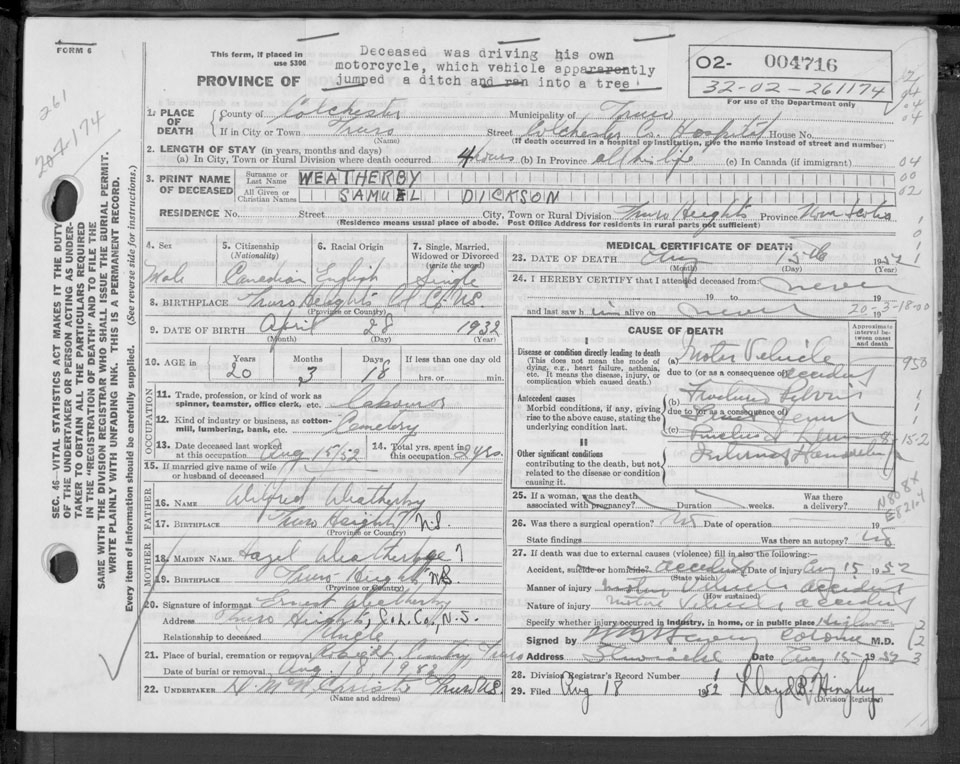 FORM 6
This form, if placed in
use $300
PROVINCE OF
Deceased was driving his own
motorcycle, which vehicle appararently
jumped a ditch and ran into a tree
02- 004716
32-02-261174
For use of the Department only
261
207174
SEC. 46—VITAL STATISTICS ACT MAKES IT THE DUTY
OF THE UNDERTAKER OR PERSON ACTING AS UNDER-
TAKER TO OBTAIN ALL THE PARTICULARS REQUIRED
IN THE "REGISTRATION OF DEATH" AND TO FILE THE
SAME WITH THE DIVISION REGISTRAR WHO SHALL ISSUE THE BURIAL PERMIT.
WRITE PLAINLY WITH UNFADING INK. THIS IS A PERMANENT RECORD.
Every item of information should be carefully supplied. (See reverse side for instructions.)
1. PLACE OF DEATH
County of Colchester Municipality of Truro
If in City or Town Truro Street Colchester Co. Hospital House No.
(Name) (If death occurred in a hospital or institution, give the name instead of street and number)
2. LENGTH OF STAY (in years, months and days)
(a) In City, Town or Rural Division where death occurred 4 hours (b) In Province all his life (c) In Canada (if immigrant)
3. PRINT NAME OF DECEASED
Surname or Last Name WEATHERBY
All Given or Christian Names SAMUEL DICKSON
RESIDENCE No. Street City, Town or Rural Division Truro Heights Province Nova Scotia
(Residence means usual place of abode. Post Office Address for residents in rural parts not sufficient)
4. Sex Male
5. Citizenship (Nationality) Canadian
6. Racial Origin English
7. Single, Married, Widowed or Divorced (write the word) Single
8. BIRTHPLACE Truro Heights Col. Co. NS
(Province or Country)
9. DATE OF BIRTH April 28 1932
(Month) (Day) (Year)
10. AGE in Years Months Days If less than one day old
20 3 18 hrs. or min.
OCCUPATION
11. Trade, profession, or kind of work as
spinner, teamster, office clerk, etc. Labourer
12. Kind of industry or business, as cotton-
mill, lumbering, bank, etc. Cemetery
13. Date deceased last worked
at this occupation Aug 15/52
14. Total yrs. spent in
this occupation 2 yrs.
15. If married give name of wife
or husband of deceased
FATHER
16. NAME Wilfred Weatherby
17. BIRTHPLACE Truro Heights N.S.
(Province or Country)
MOTHER
18. MAIDEN NAME Hazel Weatherbee ?
19. BIRTHPLACE Truro Heights NS
(Province or Country)
20. Signature of informant Ernest Weatherby
Address Truro Heights, Col. Co., N.S.
Relationship to deceased Uncle
21. Place of burial, cremation or removal Truro
Date of burial or removal Aug
22. UNDERTAKER Truro N.S.
(Name and address)
MEDICAL CERTIFICATE OF DEATH
23. DATE OF DEATH Aug 15th 1952
(Month) (Day) (Year)
24. I HEREBY CERTIFY that I attended deceased from never
19 to 19
and last saw him alive on never 19
20-3-18-00
CAUSE OF DEATH
Approximate interval between onset and death
I
Disease or condition directly leading to death
(This does not mean the mode of dying, e.g., heart failure, asthenia, etc. It means the disease, injury, or complication which caused death.)
(a) Motor Vehicle
due to (or as a consequence of) accident
Antecedent causes
Morbid conditions, if any, giving rise to the above cause, stating the underlying condition last.
(b) Fractured Pelvis
due to (or as a consequence of)
(c)
II
Other significant conditions
contributing to the death, but not related to the disease or condition causing it.
25. If a woman, was the death associated with pregnancy? Duration weeks. Was there a delivery?
N808X
E821.4
26. Was there a surgical operation? No Date of operation 19
State findings Was there an autopsy? No
27. If death was due to external causes (violence) fill in also the following:
Accident, suicide or homicide? accident Date of injury Aug 15 1952
(State which)
Manner of injury motor vehicle accident
(How sustained)
Nature of injury motor vehicle accident
Specify whether injury occurred in industry, in home, or in public place Highway
Signed by M.D.
Address Stewiacke Date Aug 15 1952
28. Division Registrar's Record Number
29. Filed Aug 18 1952 Lloyd B. Hingley
(Division Registrar)